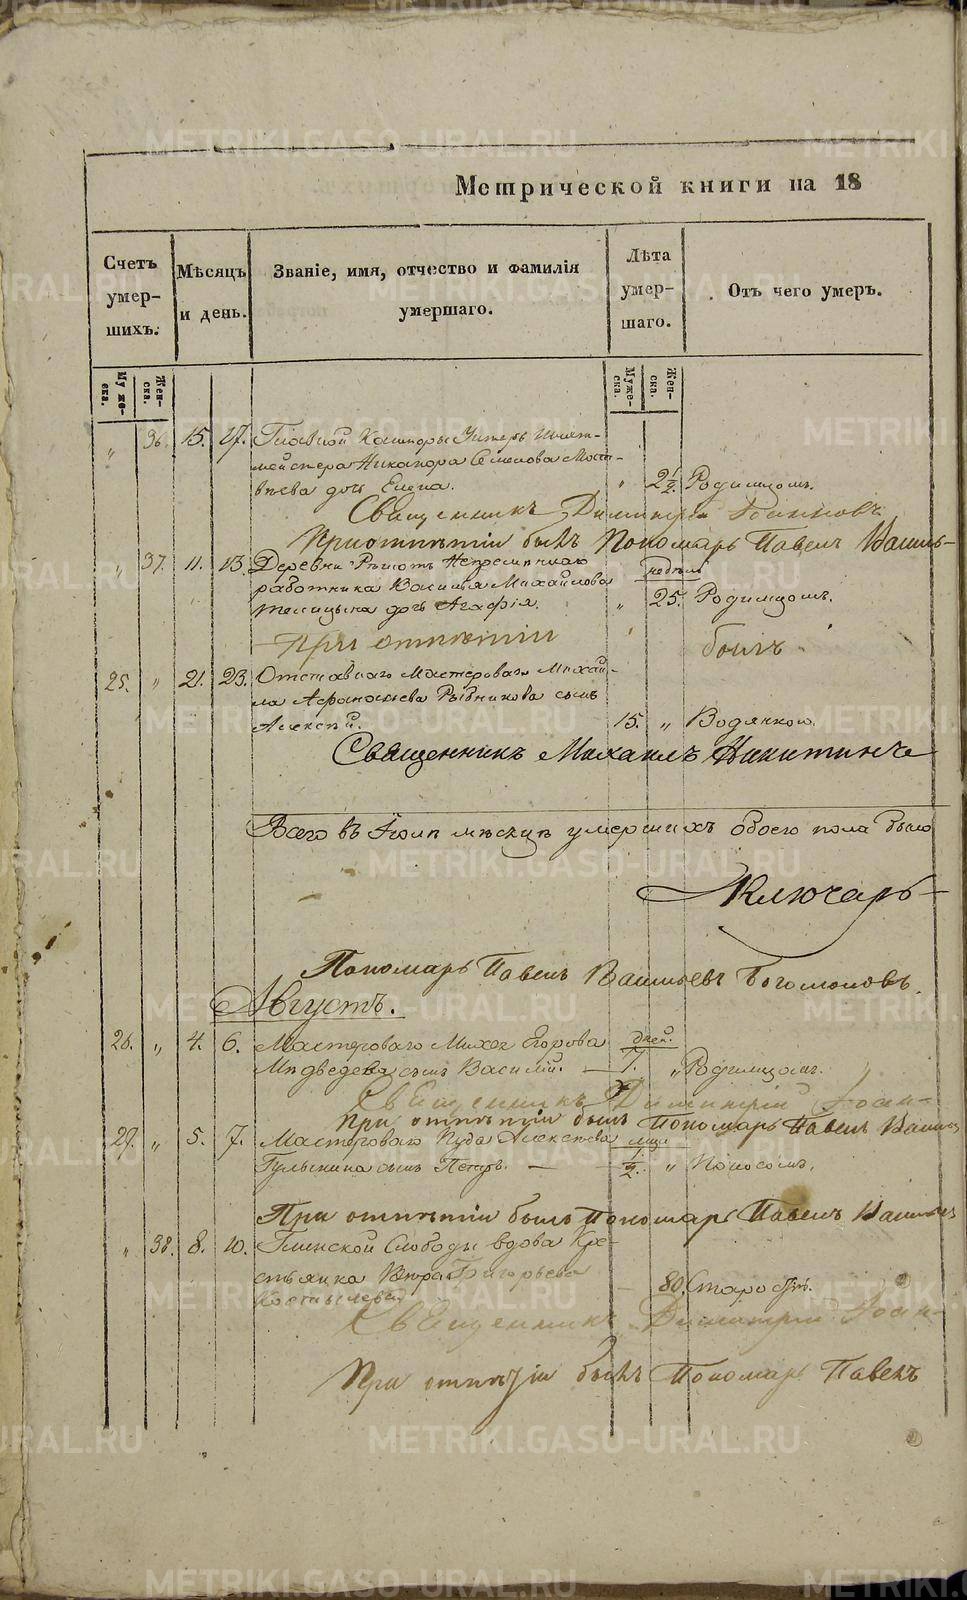 Метрической книги на 18
Счетъ умер- шихъ.
Мѣсяцъ и день.
Званіе, имя, отчество и фамилія умершаго.
Лѣта умер- шаго.
Отъ чего умеръ.
Му же- ска.
Жен- ска.
Муже- ска.
Жен- ска.
„ 36. 15. 17. Главной Канторы Унтеръ Шихт-
мейстера Никанора Семенова
дочь Елена. „ 2 1/2. Родимцомъ.
Священникъ Димитрій Іоанновъ
При отпѣтіи былъ Пономарь Павелъ Василь-
„ 37. 11. 13. Деревни Рѣшотъ Непремѣннаго недѣль
работника Василья Михайлова
дочь Агафія. „ 25. Родимцомъ.
При отпѣтіи былъ
25. „ 21. 23. Отставнаго Мастероваго Михай-
ла Афонасьева Рыбникова сынъ
Алексѣй. 15. „ Водянкою.
Священникъ Михаилъ Никитинъ
Всего въ Іюлѣ мѣсяцѣ умершихъ обоего пола было
Ключарь
Пономарь Павелъ Васильевъ Богомоловъ.
Августъ.
26. „ 4. 6. Мастероваго Михея Егорова дней.
Медведева сынъ Василій. — 7. „ Родимцомъ.
Священникъ Димитрій Іоан-
При отпѣтіи былъ Пономарь Павелъ Василь
27. „ 5. 7. Мастероваго Иуда Алексѣева мца
сынъ Петръ. — 1/2. „ Поносомъ.
При отпѣтіи былъ Пономарь Павелъ Василье
„ 38. 8. 10. Глинской Слободы вдова Кре-
стьянка Григорьева
Костылева — 80. Старостью.
Священникъ Димитрій Іоан-
При отпѣтіи былъ Пономарь Павелъ
METRIKI.GASO-URAL.RU